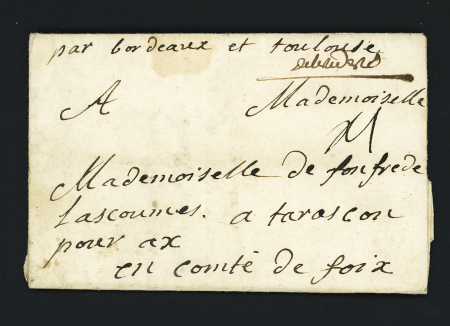 par bordeaux et toulouse
A Mademoiselle
Mademoiselle de fonfrede
Lascoumes. a tarascon
pour ax
en comté de foix